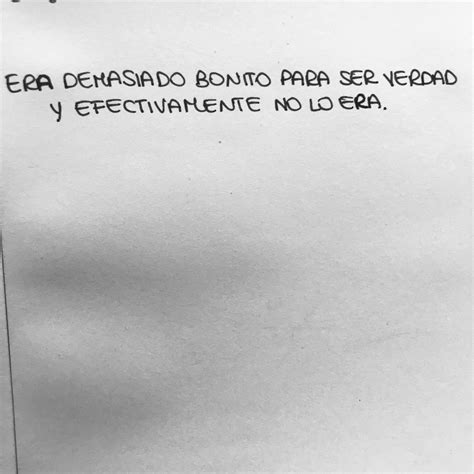 ERA DEMASIADO BONITO PARA SER VERDAD
Y EFECTIVAMENTE NO LO ERA.